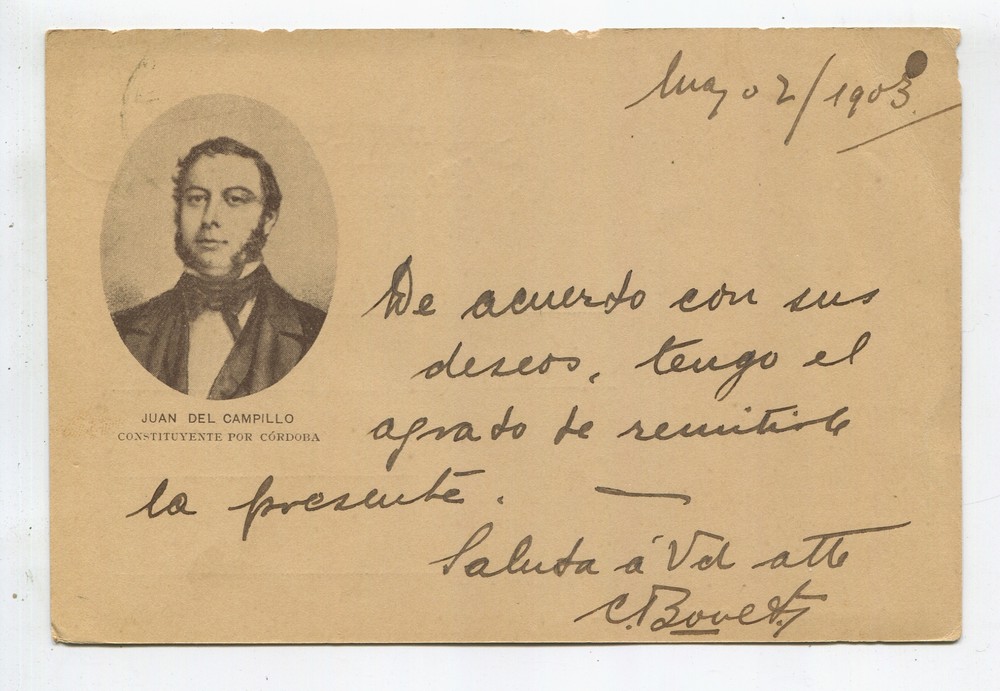 Mayo 2/1903.
JUAN DEL CAMPILLO
CONSTITUYENTE POR CÓRDOBA
De acuerdo con sus
deseos, tengo el
agrado de remitirle
la presente. —
Saluda á Vd atte